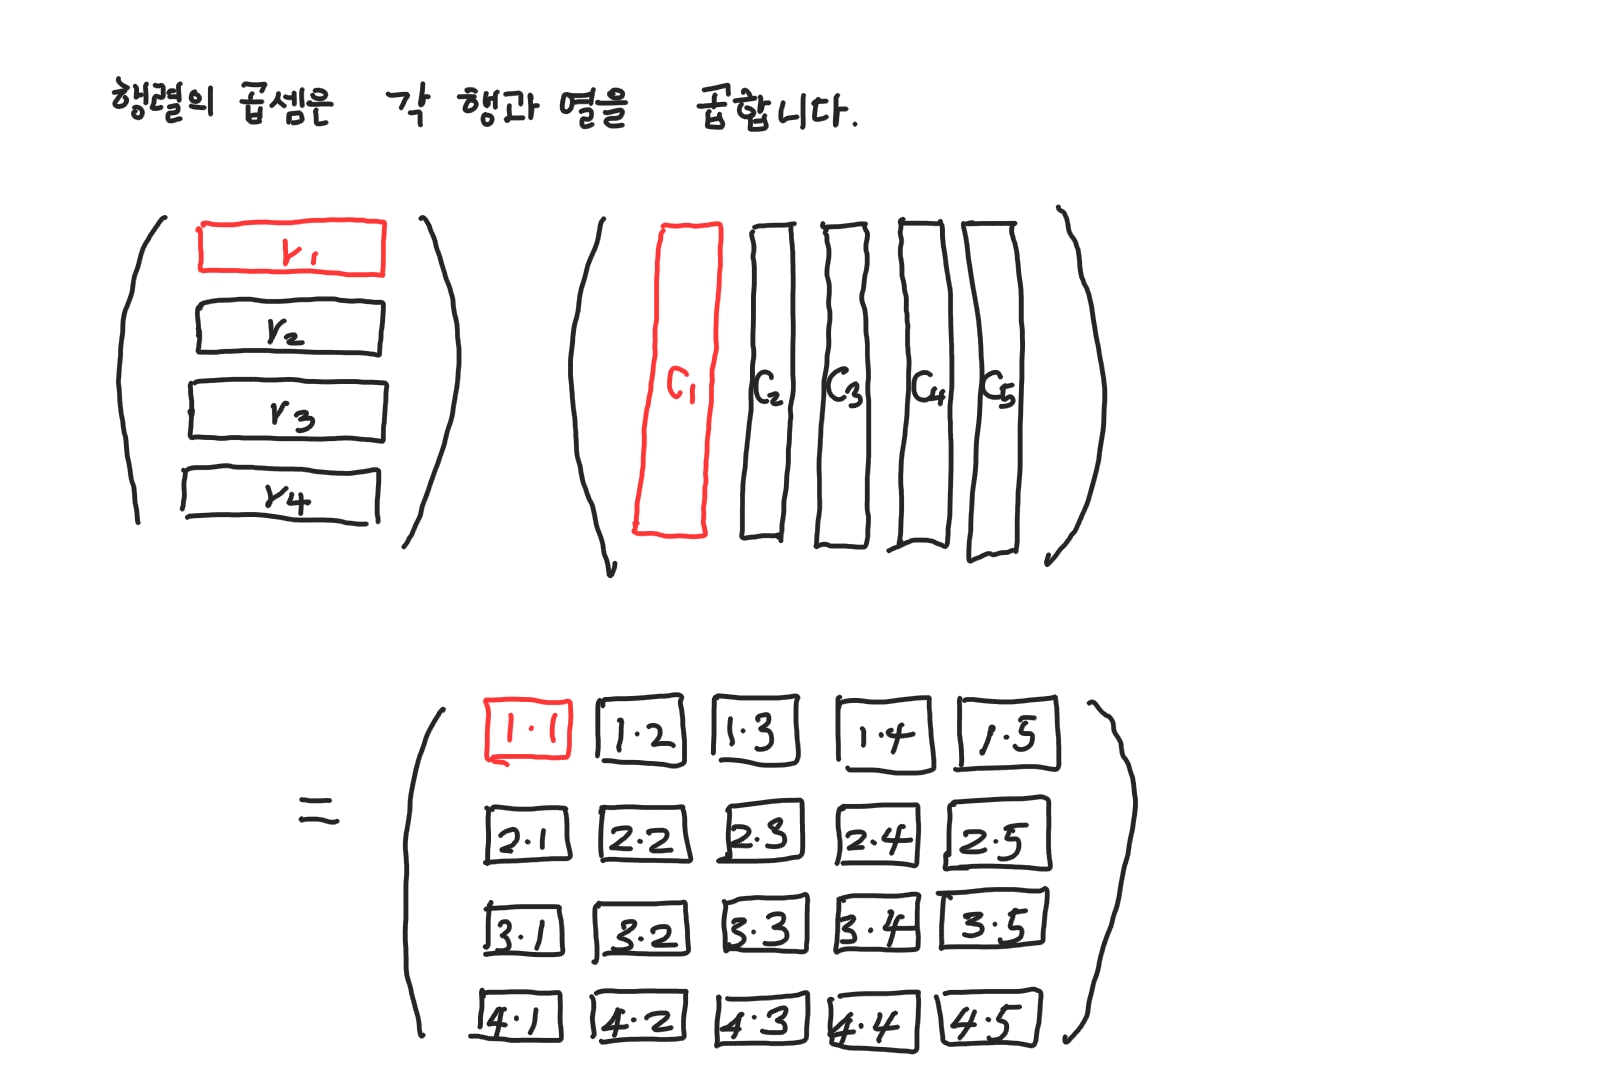 행렬의 곱셈은 각 행과 열을 곱합니다.
r1
r2
r3
r4
C1 C2 C3 C4 C5
=
1·1 1·2 1·3 1·4 1·5
2·1 2·2 2·3 2·4 2·5
3·1 3·2 3·3 3·4 3·5
4·1 4·2 4·3 4·4 4·5